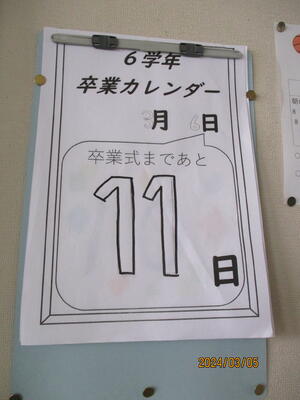 6学年
卒業カレンダー
3月6日
卒業式まであと
11日
2024/03/05